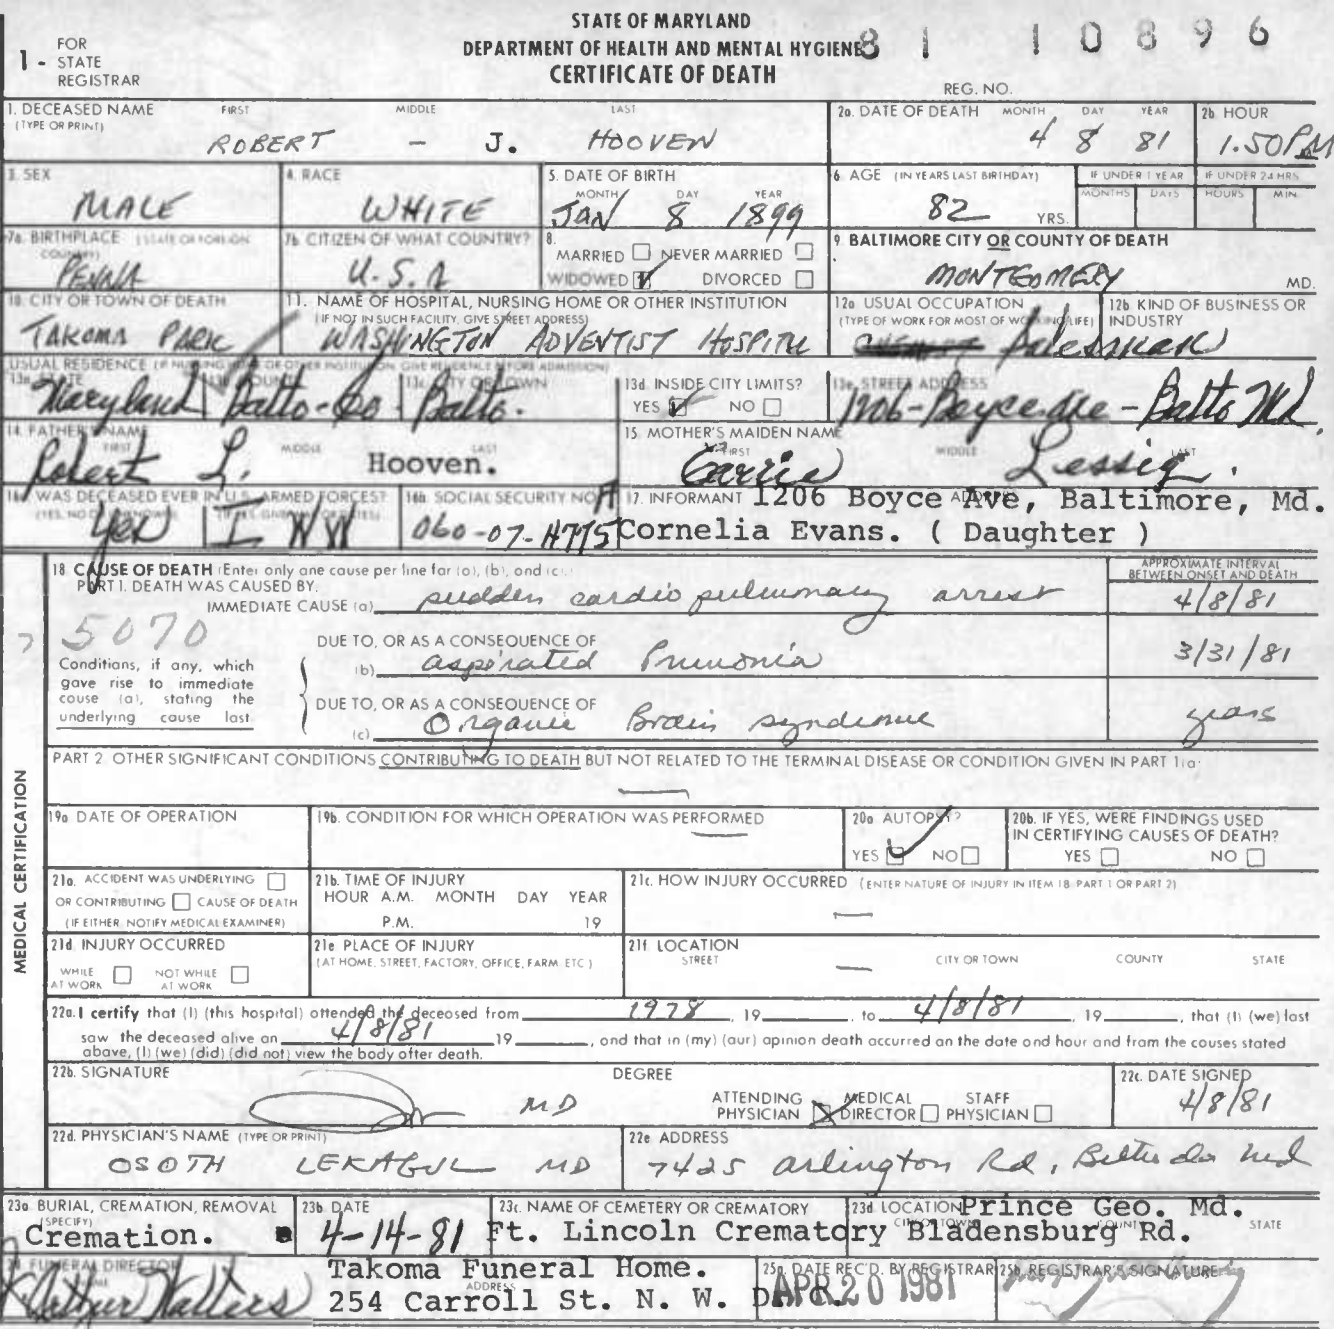 STATE OF MARYLAND
DEPARTMENT OF HEALTH AND MENTAL HYGIENE
CERTIFICATE OF DEATH
81 10896
1 - FOR STATE REGISTRAR
REG. NO.
1. DECEASED NAME FIRST MIDDLE LAST
(TYPE OR PRINT)
ROBERT - J. HOOVEN
2a. DATE OF DEATH MONTH DAY YEAR
4 8 81
2b HOUR
1.50 PM
3. SEX
MALE
4. RACE
WHITE
5. DATE OF BIRTH
MONTH DAY YEAR
JAN 8 1899
6 AGE (IN YEARS LAST BIRTHDAY)
82 YRS.
IF UNDER 1 YEAR
MONTHS DAYS
IF UNDER 24 HRS
HOURS MIN.
7a. BIRTHPLACE (STATE OR FOREIGN COUNTRY)
PENNA
7b CITIZEN OF WHAT COUNTRY?
U.S.A
8.
MARRIED NEVER MARRIED
WIDOWED DIVORCED
9. BALTIMORE CITY OR COUNTY OF DEATH
MONTGOMERY MD.
10. CITY OR TOWN OF DEATH
TAKOMA PARK
11. NAME OF HOSPITAL, NURSING HOME OR OTHER INSTITUTION
(IF NOT IN SUCH FACILITY, GIVE STREET ADDRESS)
WASHINGTON ADVENTIST HOSPITAL
12a USUAL OCCUPATION
(TYPE OF WORK FOR MOST OF WORKING LIFE)
Salesman
12b KIND OF BUSINESS OR INDUSTRY
USUAL RESIDENCE (IF NURSING HOME OR OTHER INSTITUTION, GIVE RESIDENCE BEFORE ADMISSION)
13a. STATE
Maryland
13b. COUNTY
Balto-Co
13c. CITY OR TOWN
Balto.
13d. INSIDE CITY LIMITS?
YES NO
13e. STREET ADDRESS
1206-Boyce Ave-Balto Md.
14. FATHER'S NAME
FIRST MIDDLE LAST
Robert L. Hooven.
15. MOTHER'S MAIDEN NAME
FIRST MIDDLE LAST
Carrie Lessig.
16a. WAS DECEASED EVER IN U.S. ARMED FORCES?
Yes I WW
16b. SOCIAL SECURITY NO.
060-07-4775 A
17. INFORMANT ADDRESS
1206 Boyce Ave, Baltimore, Md.
Cornelia Evans. ( Daughter )
18 CAUSE OF DEATH (Enter only one cause per line for (a), (b), and (c).)
PART 1. DEATH WAS CAUSED BY:
APPROXIMATE INTERVAL BETWEEN ONSET AND DEATH
IMMEDIATE CAUSE (a) sudden cardio pulmonary arrest 4/8/81
5070
DUE TO, OR AS A CONSEQUENCE OF
(b) aspirated Pnumonia 3/31/81
Conditions, if any, which gave rise to immediate cause (a), stating the underlying cause last.
DUE TO, OR AS A CONSEQUENCE OF
(c) Organic Brain syndrome years
PART 2. OTHER SIGNIFICANT CONDITIONS CONTRIBUTING TO DEATH BUT NOT RELATED TO THE TERMINAL DISEASE OR CONDITION GIVEN IN PART 1(a)
MEDICAL CERTIFICATION
19a DATE OF OPERATION
19b. CONDITION FOR WHICH OPERATION WAS PERFORMED
20a AUTOPSY?
YES NO
20b. IF YES, WERE FINDINGS USED IN CERTIFYING CAUSES OF DEATH?
YES NO
21a. ACCIDENT WAS UNDERLYING
OR CONTRIBUTING CAUSE OF DEATH
(IF EITHER, NOTIFY MEDICAL EXAMINER)
21b. TIME OF INJURY
HOUR A.M. MONTH DAY YEAR
P.M. 19
21c. HOW INJURY OCCURRED (ENTER NATURE OF INJURY IN ITEM 18 PART 1 OR PART 2)
21d. INJURY OCCURRED
WHILE AT WORK NOT WHILE AT WORK
21e PLACE OF INJURY
(AT HOME, STREET, FACTORY, OFFICE, FARM, ETC.)
21f LOCATION
STREET CITY OR TOWN COUNTY STATE
22a. I certify that (I) (this hospital) attended the deceased from 1978, 19 , to 4/8/81, 19 , that (I) (we) last
saw the deceased alive on 4/8/81 19 , and that in (my) (our) opinion death occurred on the date and hour and from the causes stated
above, (I) (we) (did) (did not) view the body after death.
22b. SIGNATURE DEGREE
MD
ATTENDING PHYSICIAN MEDICAL DIRECTOR STAFF PHYSICIAN
22c. DATE SIGNED
4/8/81
22d. PHYSICIAN'S NAME (TYPE OR PRINT)
OSOTH LEKAGUL MD
22e ADDRESS
7425 Arlington Rd, Bethesda Md
23a BURIAL, CREMATION, REMOVAL
(SPECIFY)
Cremation.
23b. DATE
4-14-81
23c. NAME OF CEMETERY OR CREMATORY
Ft. Lincoln Crematory
23d LOCATION CITY OR TOWN COUNTY STATE
Prince Geo. Md.
Bladensburg Rd.
24. FUNERAL DIRECTOR
NAME
Arthur Walters
Takoma Funeral Home.
ADDRESS
254 Carroll St. N. W. D. C.
25a. DATE REC'D. BY REGISTRAR
APR 20 1981
25b. REGISTRAR'S SIGNATURE